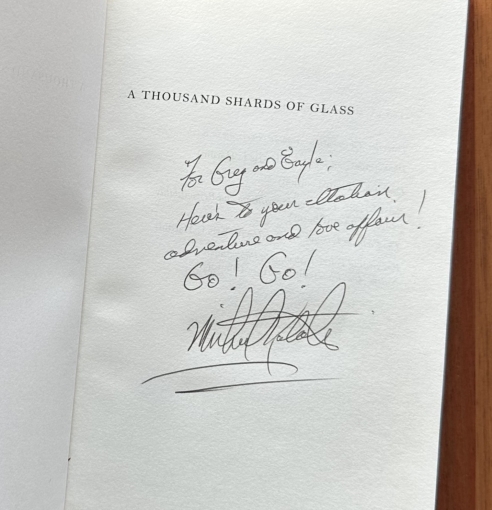 A THOUSAND SHARDS OF GLASS
For Greg and Gayle;
Here's to your Italian
adventure and love affair!
Go! Go!